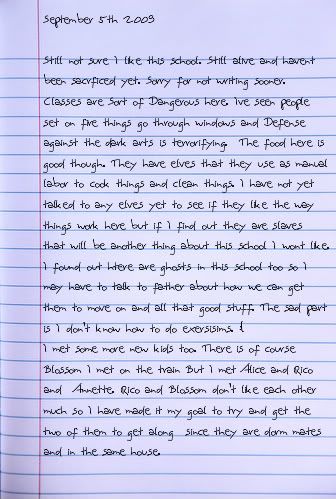 September 5th 2009
Still not sure I like this school. Still alive and havent
been sacrficed yet. Sorry for not writing sooner.
Classes are Sort of Dangerous here. Ive seen people
set on fire things go through windows and Defense
against the dark arts is terrorifying. The food here is
good though. They have elves that they use as manual
labor to cook things and clean things. I have not yet
talked to any elves yet to see if they like the way
things work here but if I find out they are slaves
that will be another thing about this school I wont like.
I found out htere are ghosts in this school too so I
may have to talk to father about how we can get
them to move on and all that good stuff. The sad part
is I don't know how to do exersisims. {
I met some more new kids too. There is of course
Blossom I met on the train But I met Alice and Rico
and Annette. Rico and Blossom don't like each other
much so I have made it my goal to try and get the
two of them to get along since they are dorm mates
and in the same house.